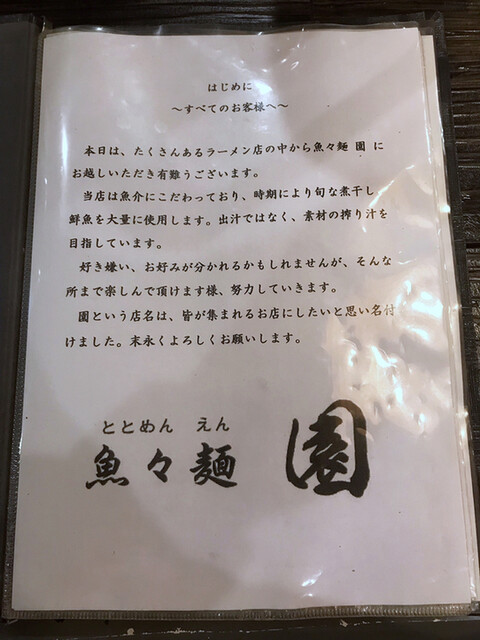 はじめに
～すべてのお客様へ～
本日は、たくさんあるラーメン店の中から魚々麺 園 に
お越しいただき有難うございます。
当店は魚介にこだわっており、時期により旬な煮干し
鮮魚を大量に使用します。出汁ではなく、素材の搾り汁を
目指しています。
好き嫌い、お好みが分かれるかもしれませんが、そんな
所まで楽しんで頂けます様、努力していきます。
園という店名は、皆が集まれるお店にしたいと思い名付
けました。末永くよろしくお願いします。
ととめん えん
魚々麺 園